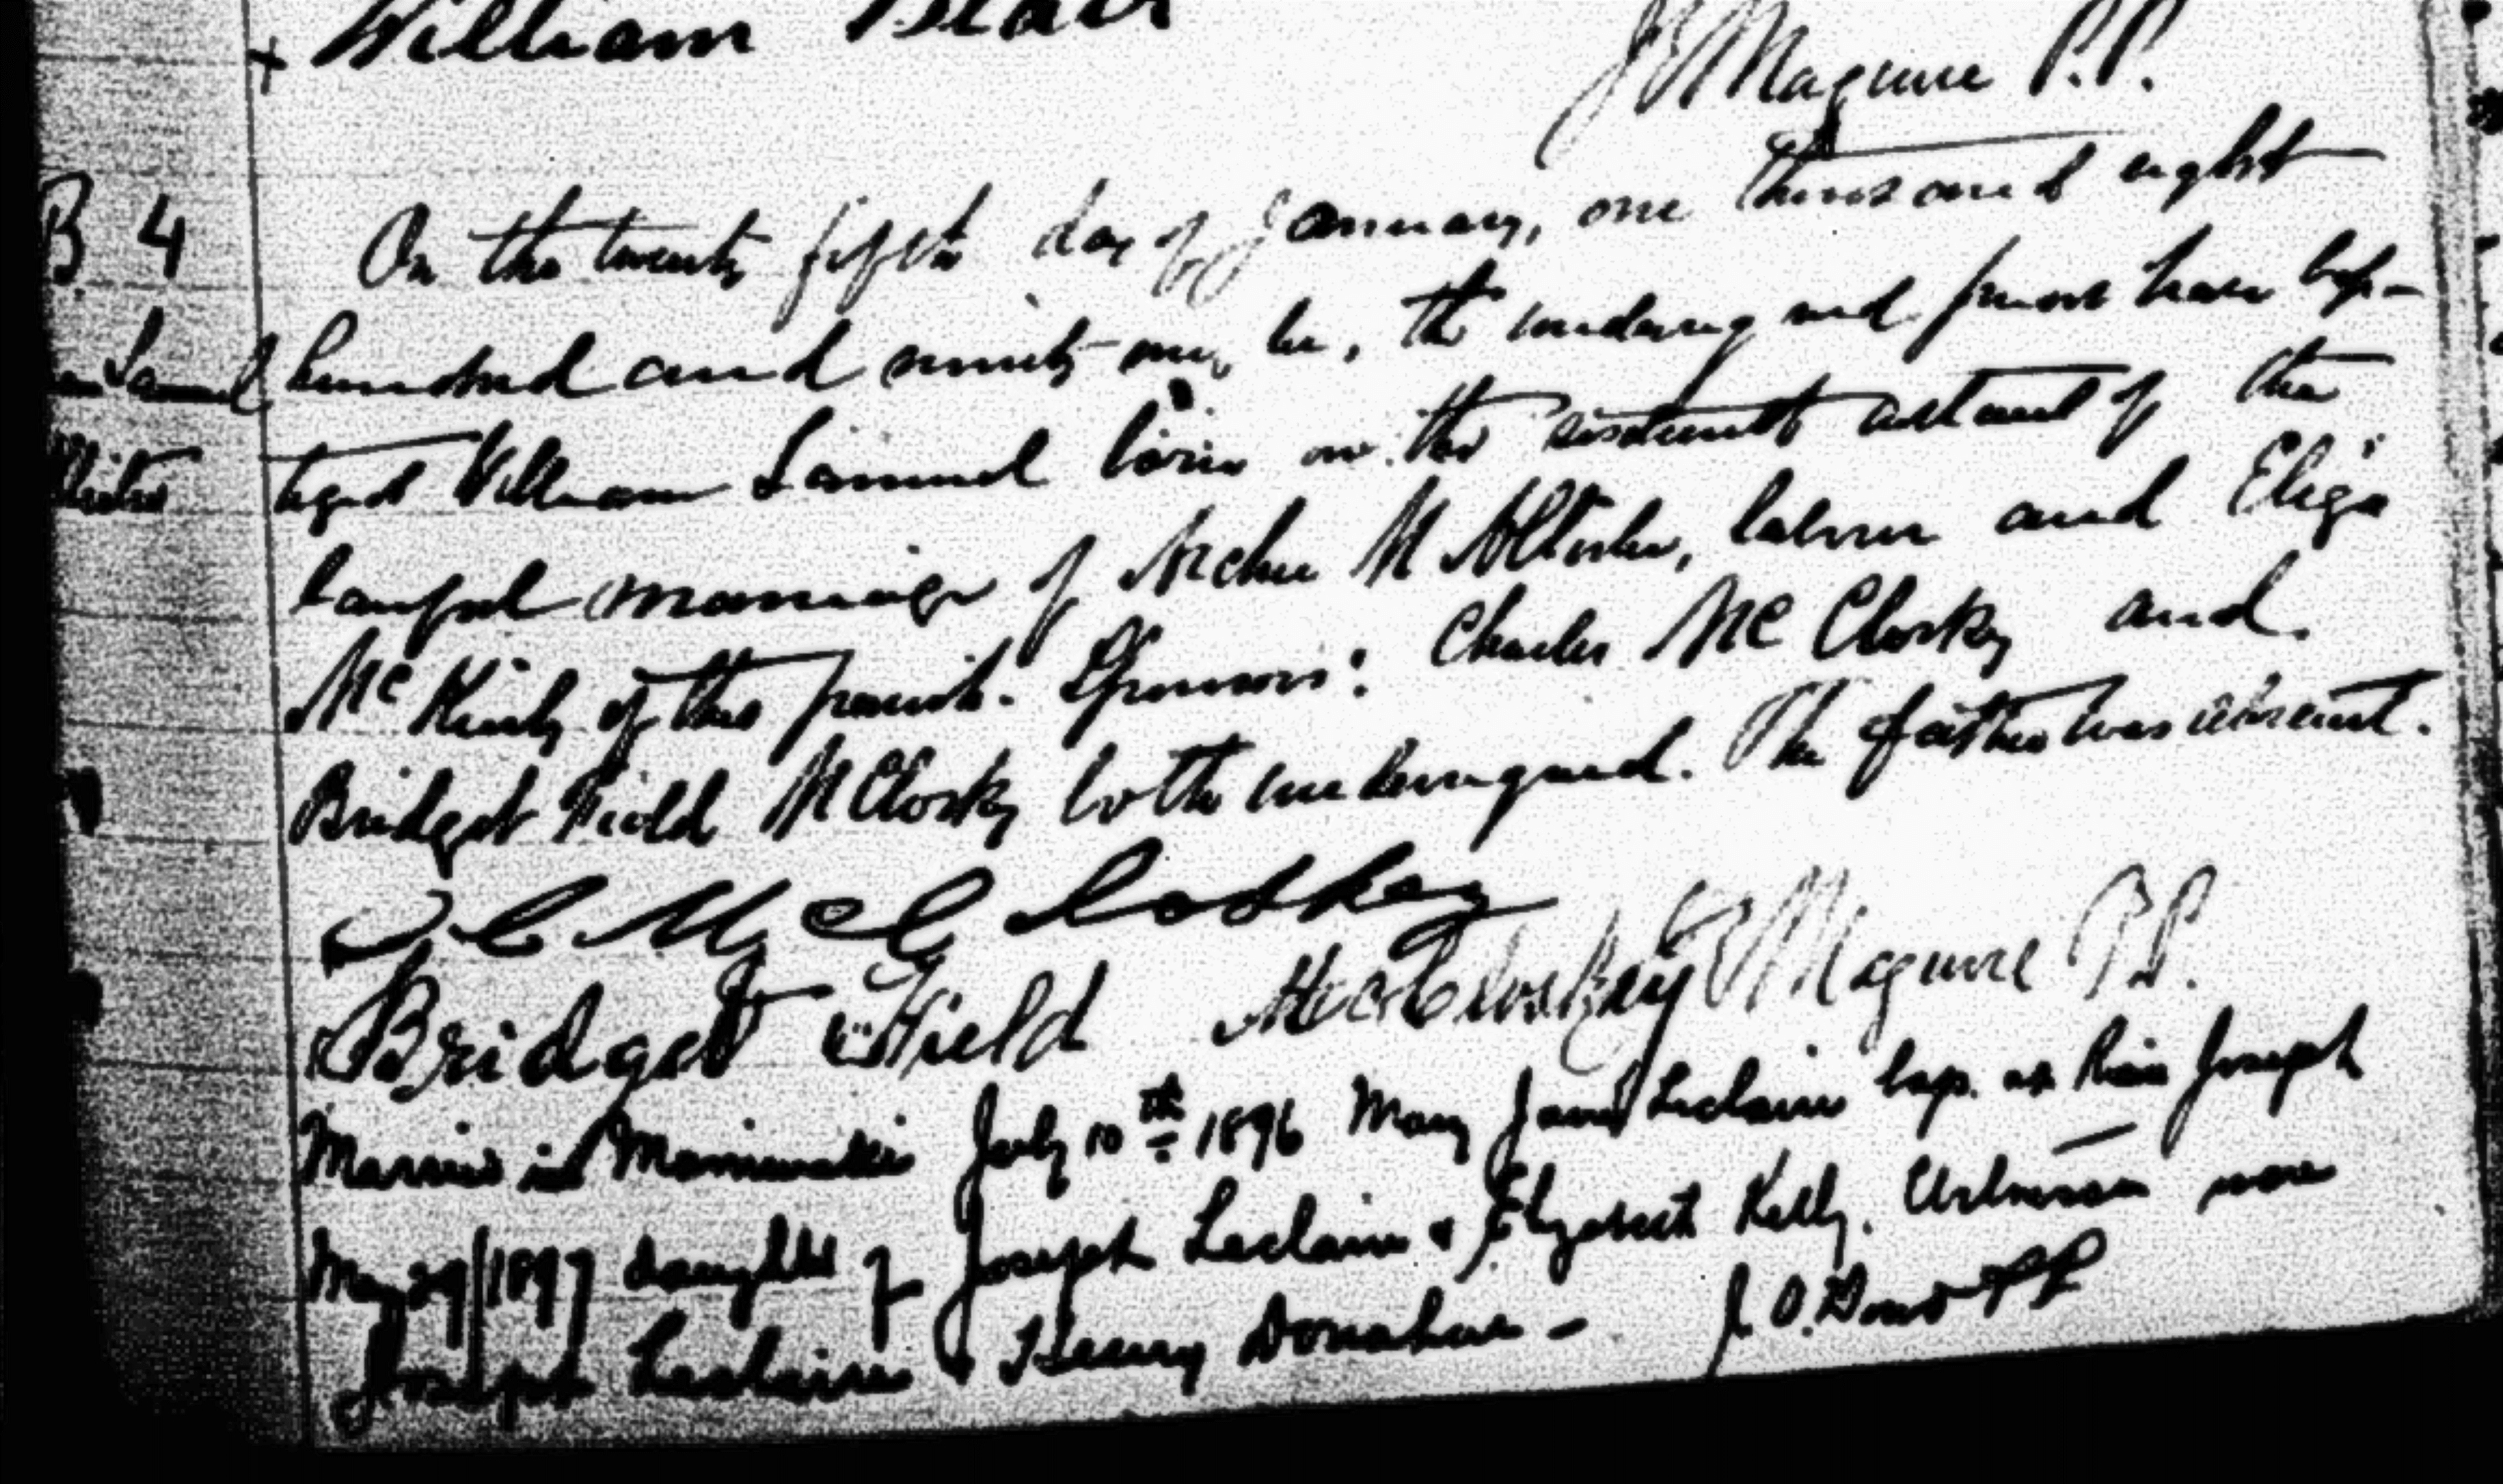 + William Blair
J. E. Maguire P.P.
B 4
On the twenty fifth day of January, one thousand eight
Samuel hundred and ninety-one, we, the undersigned priest have bap-
tized William Samuel born on the sixteenth instant of the
lawful marriage of Archie McAllister, labourer and Eliza
McKinly of this parish. Sponsors: Charles McClosky and
Bridget Field McClosky both undersigned. The father was absent.
C McCloskey
Bridget Field McCloskey J. E. Maguire P.P.
Married in Maniwaki July 10th 1896 Mary Jane Leclaire bap. at St. Joseph
May 29/1897 daughter of Joseph Leclaire & Elizabeth Kelly. Witnesses were
Joseph Leclaire & Henry Donahue - J. O. PP